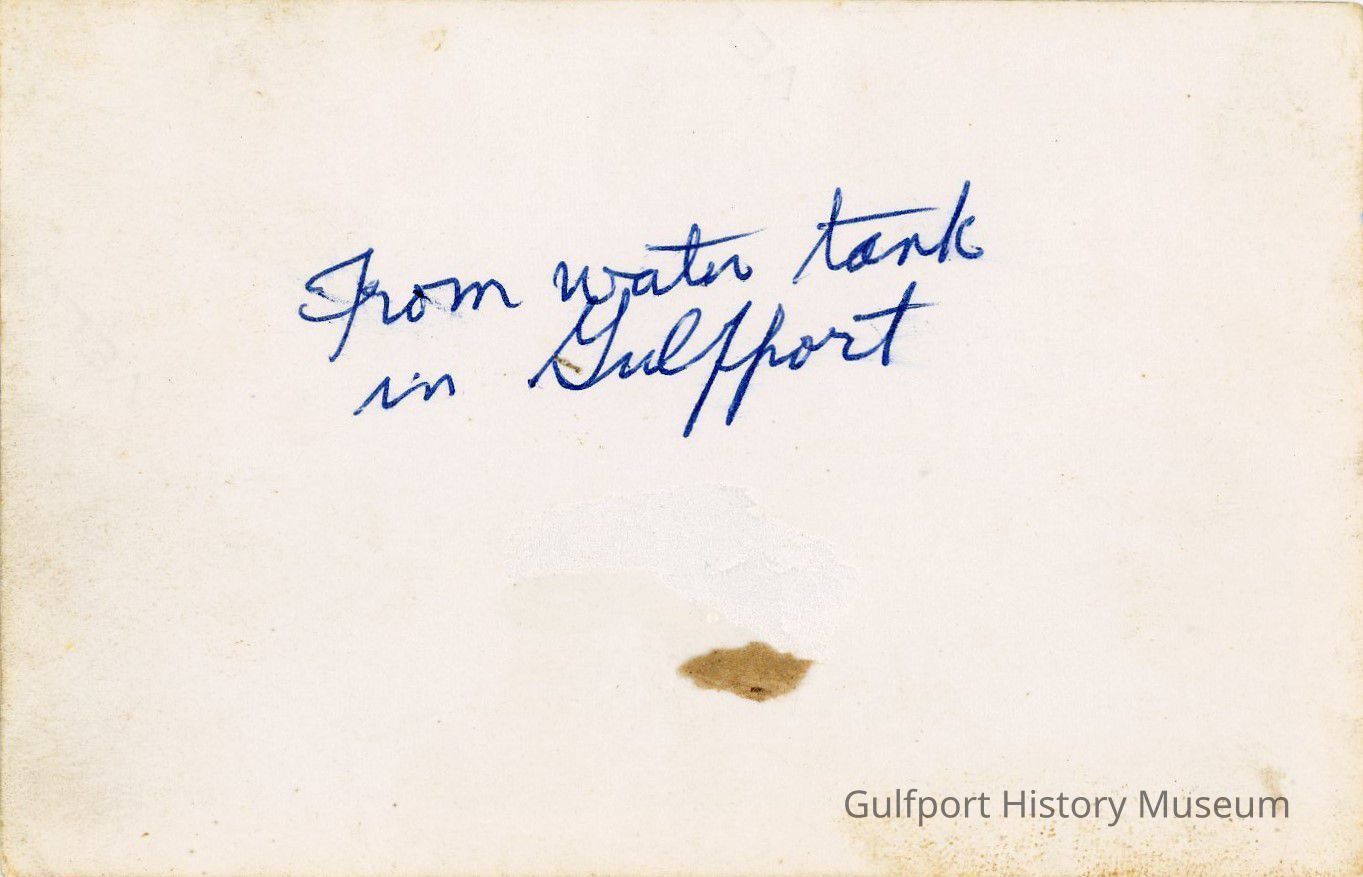 From water tank
in Gulfport
Gulfport History Museum